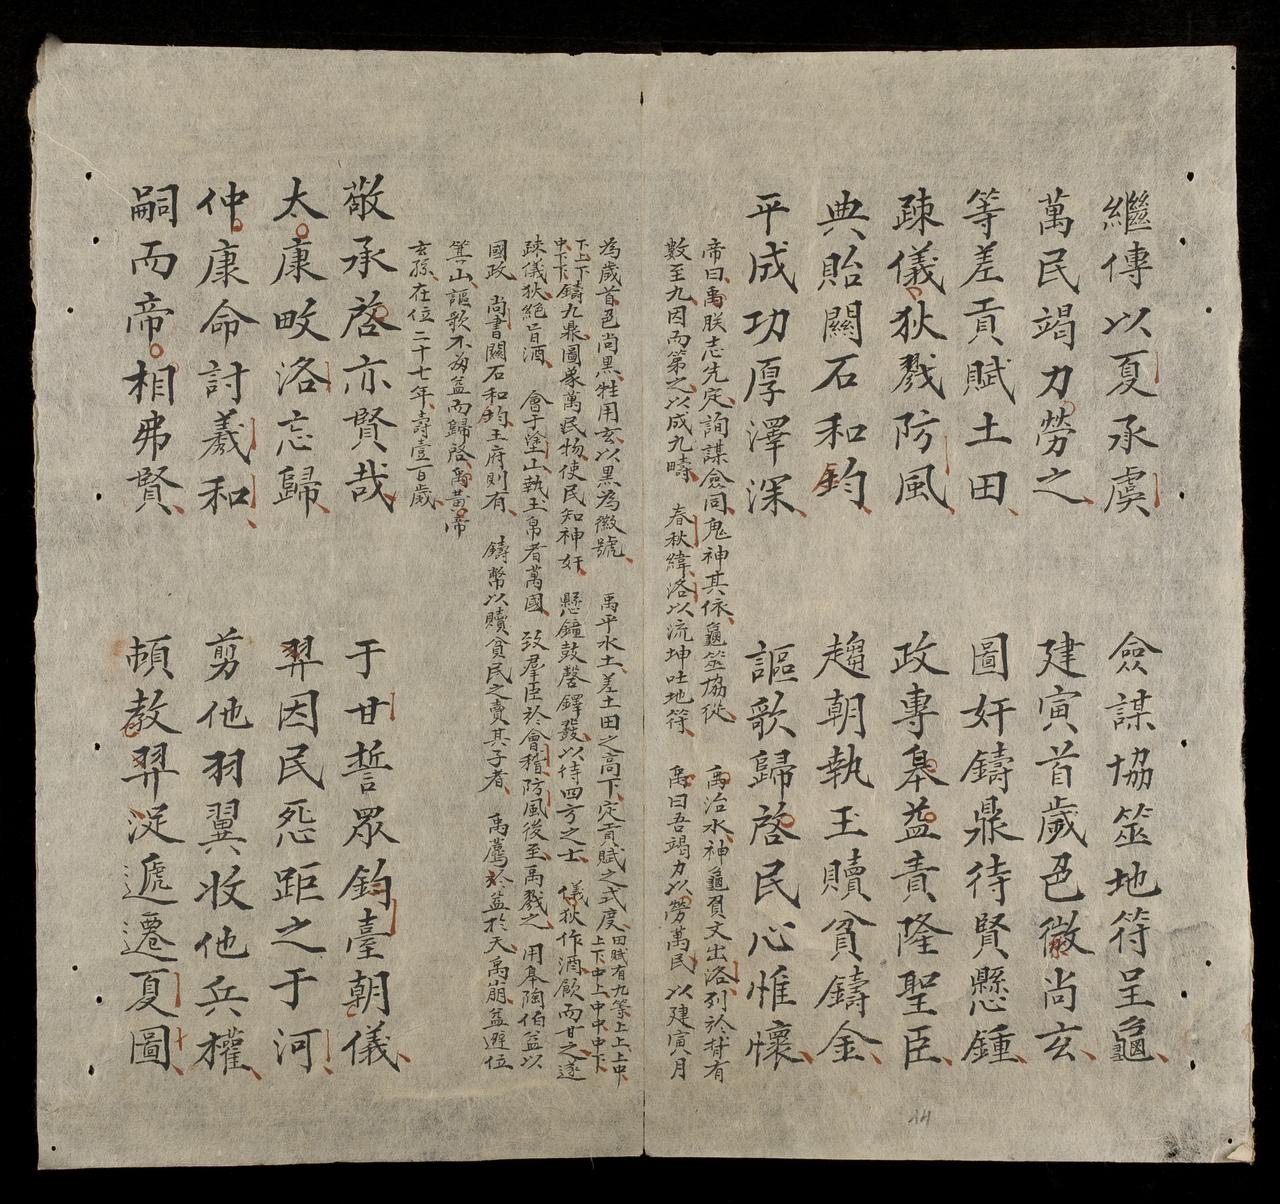 繼傳以夏承虞　僉謀協筮地符呈龜
萬民竭力勞之　建寅首歲色徽尚玄
等差貢賦土田　圖奸鑄鼎待賢懸鍾
踈儀狄戮防風　政專皋益責隆聖臣
典貽關石和鈞　趨朝執玉贖貧鑄金
平成功厚澤深　謳歌歸啓民心惟懷
帝曰禹朕志先定詢謀僉同鬼神其依龜筮協從　禹治水神龜負文出洛列於背有
數至九因而第之以成九疇　春秋緯洛以流坤吐地符　禹曰吾竭力以勞萬民　以建寅月
為歲首色尚黑牲用玄以黑為徽號　禹平水土差土田之高下定貢賦之式度田賦有九等上上上中
上下中上中中中下
下上下
中下下鑄九鼎圖象萬民物使民知神奸　懸鐘鼓磬鐸發以待四方之士　儀狄作酒飲而甘之遂
踈儀狄絕旨酒　會于塗山執玉帛者萬國　致羣臣於會稽防風後至禹戮之　用皋陶伯益以
國政　尚書關石和鈞王府則有　鑄幣以贖貧民之賣其子者　禹薦於益於天禹崩益避位
箕山謳歌不匈益而歸啓禹黃帝
玄孫在位二十七年壽壹百歲
敬承啓亦賢哉　于甘誓眾鈞臺朝儀
太康畋洛忘歸　羿因民怨距之于河
仲康命討羲和　剪他羽翼收他兵權
嗣而帝相弗賢　頓教羿浞遞遷夏圖